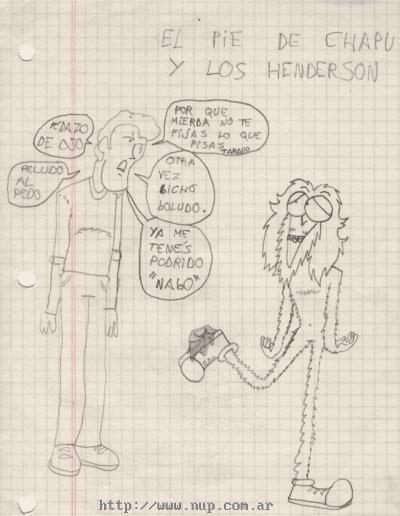 EL PiE DE CHAPU
Y LOS HENDERSON
PEDAZO
DE OSO
PELUDO
AL
PEDO
POR QUE
MIERDA NO TE
FIJAS LO QUE
PISAS TARADO
OTRA
VEZ
bicHO
boLUDO.
YA ME
TENÉS
PODRIDO
"NAbO"
http://www.nup.com.ar